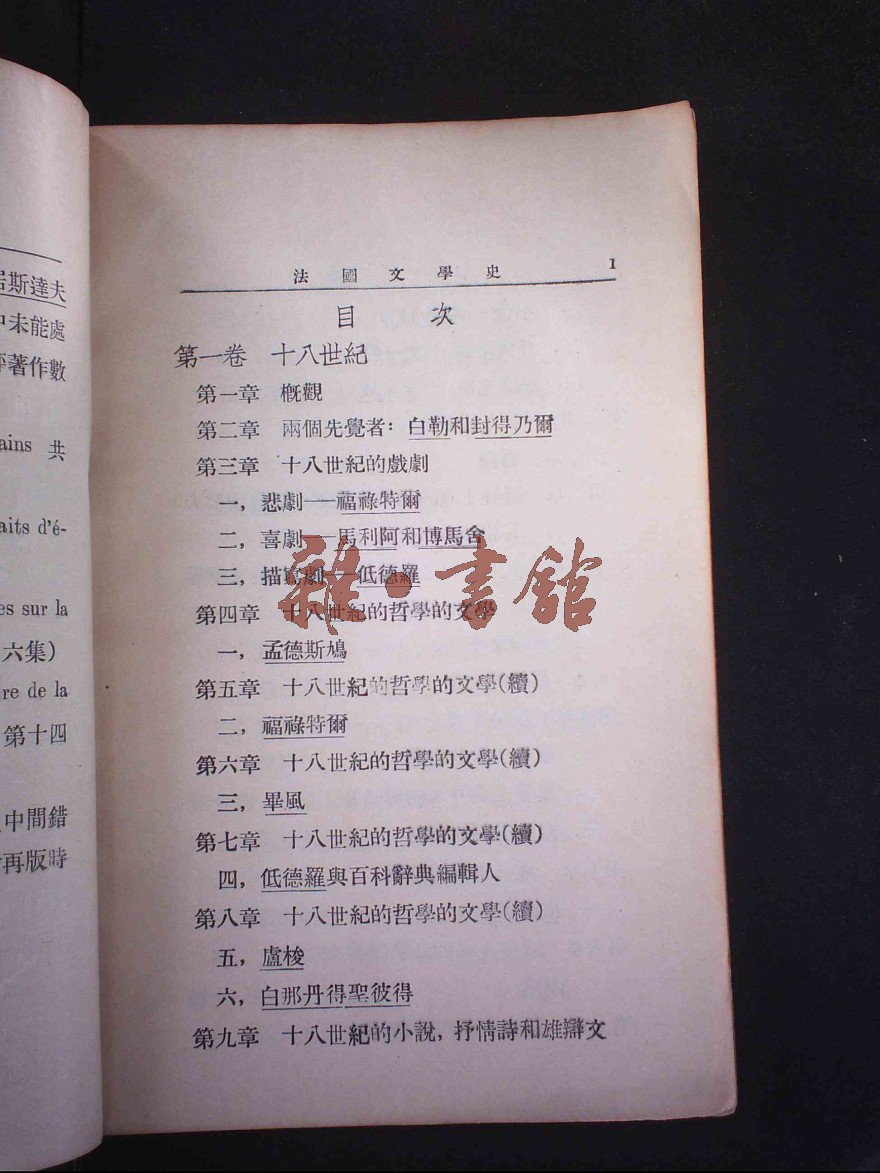 居斯達夫
中未能處
著作數
ains 共
raits d'é-
es sur la
六集)
re de la
第十四
中間錯
再版時
法國文學史 1
目次
第一卷 十八世紀
第一章 概觀
第二章 兩個先覺者: 白勒和封得乃爾
第三章 十八世紀的戲劇
一, 悲劇——福祿特爾
二, 喜劇——馬利阿和博馬舍
三, 描寫劇——低德羅
第四章 十八世紀的哲學的文學
一, 孟德斯鳩
第五章 十八世紀的哲學的文學(續)
二, 福祿特爾
第六章 十八世紀的哲學的文學(續)
三, 畢風
第七章 十八世紀的哲學的文學(續)
四, 低德羅與百科辭典編輯人
第八章 十八世紀的哲學的文學(續)
五, 盧梭
六, 白那丹得聖彼得
第九章 十八世紀的小說, 抒情詩和雄辯文
雜·書館